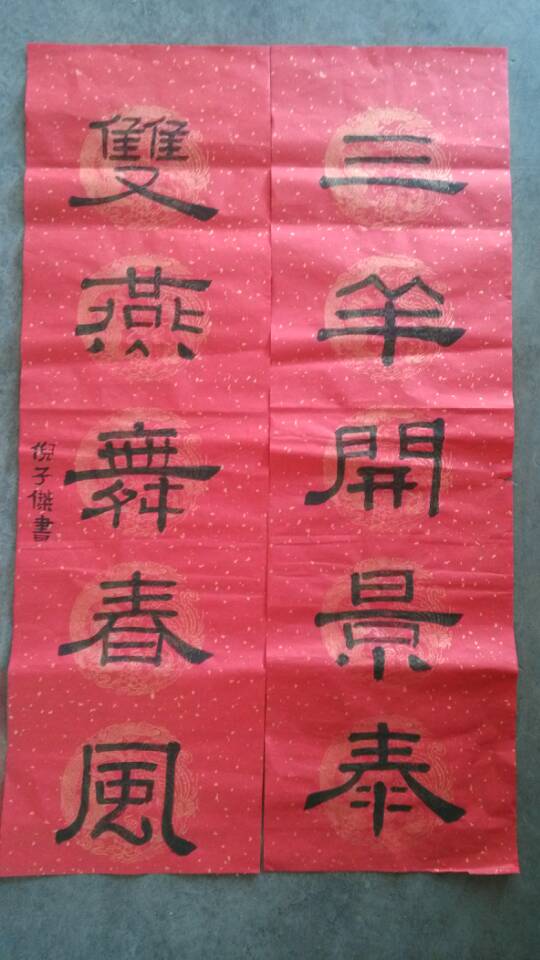 三羊開景泰
雙燕舞春風
倪子傑書